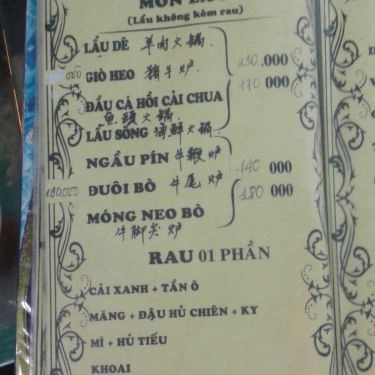 MÓN
(Lẩu không kèm rau)
LẨU DÊ 羊肉火鍋
130.000
GIÒ HEO 豬手炉
170 000
ĐẦU CÁ HỒI CẢI CHUA
魚頭火鍋
LẨU SÔNG 海鮮火鍋
NGẦU PÍN 牛鞭炉
140 000
190,000 ĐUÔI BÒ 牛尾炉
180 000
MÓNG NEO BÒ
牛脚炉
RAU 01 PHẦN
CẢI XANH + TẦN Ô
MĂNG + ĐẬU HỦ CHIÊN + KY
MÌ + HỦ TIẾU
KHOAI